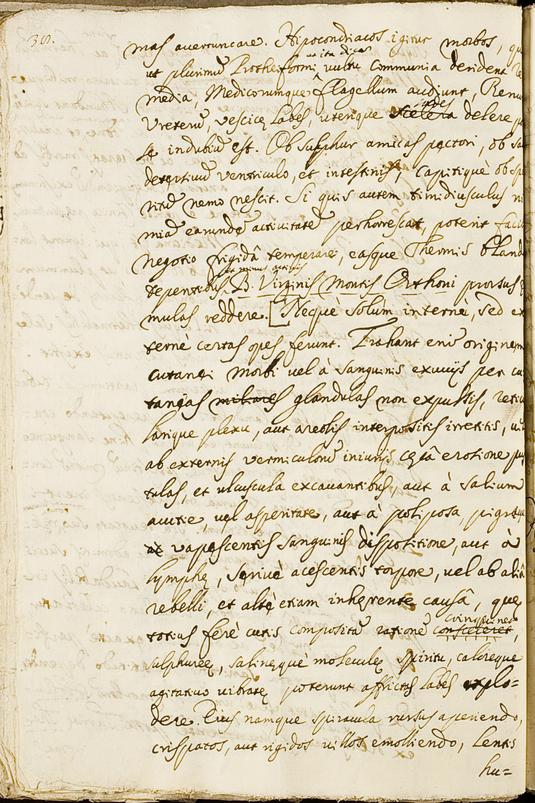 30.
mas averruncare. Hipocondriacos igitur morbos, qu
ut ita dicas
ut plurimum Protheiformi vultu communia deridere re
media, Medicorumque Flagellum audiunt, Renum
Ureterum, vescicę labes uterque delere
se indubium est. Ob sulphur amicas pectori, ob sa
ventriculo, et intestinis, Capitique ob sp
nemo nescit. Si quis autem timidiusculus ni
miam earundem activitatem perhorrescat, poterit facili
negotio frigidâ temperare, easque Thermis bland
tepentibus B. Virginis Montis Orthoni prorsus
mulas reddere. [Neque solum internè, sed ex
terne certas opes ferunt. Trahant enim originem
cutanei morbi vel à sanguinis exuviis per cu
taneas miliares glandulas non expulsis, retic
larique plexu, aut areolis interpositis irretitis,
ab externis vermiculorum iniuriis erosione pu
tulas, et ulcuscula excavantibus, aut à salium
acutie, vel asperitate, aut à poliposa, pigra
vapescentis sanguinis dispositione, aut à
lymphę, serivè acescentis torpore, vel ab aliâ
rebelli, et altè etiam inherente causâ, que
totius ferè cutis compositum ratione
sulphureę, salineque moleculę spiritu, caloreque
agitatius vibratę poterunt affrictas labes explo=
dere. Eius namque spiracula rursus aperiendo,
crispatos, aut rigidos villos emolliendo, lentis
hu=